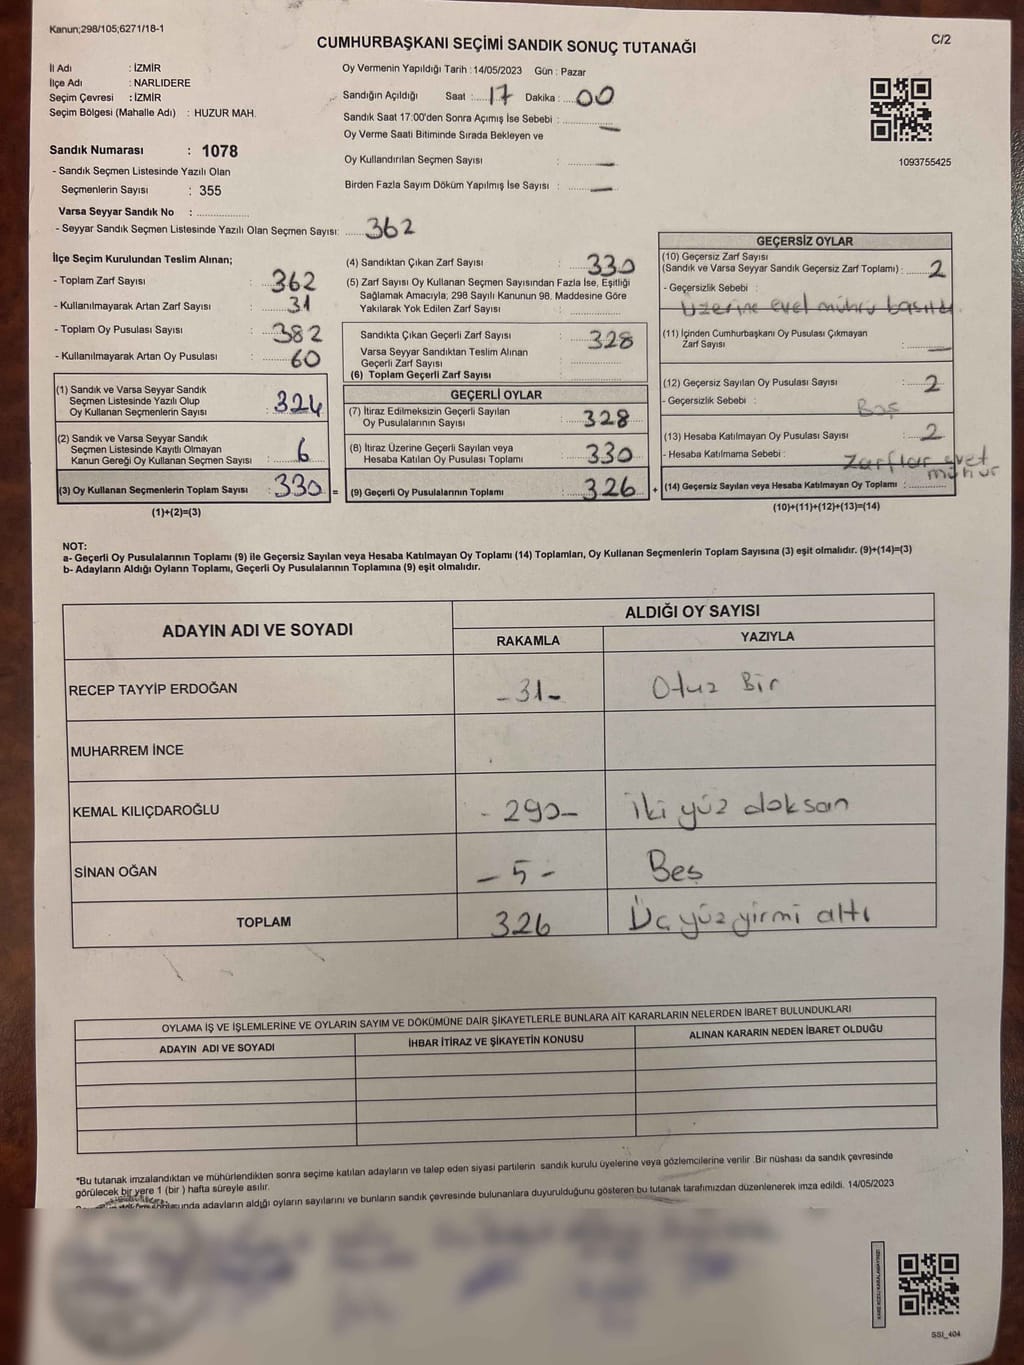 Kanun;298/105;6271/18-1
C/2
CUMHURBAŞKANI SEÇİMİ SANDIK SONUÇ TUTANAĞI
İl Adı : İZMİR
İlçe Adı : NARLIDERE
Seçim Çevresi : İZMİR
Seçim Bölgesi (Mahalle Adı) : HUZUR MAH.
Oy Vermenin Yapıldığı Tarih :14/05/2023 Gün : Pazar
Sandığın Açıldığı Saat : 17 Dakika : 00
Sandık Saat 17:00'den Sonra Açımış İse Sebebi : —
Oy Verme Saati Bitiminde Sırada Bekleyen ve
Oy Kullandırılan Seçmen Sayısı : —
Birden Fazla Sayım Döküm Yapılmış İse Sayısı : —
1093755425
Sandık Numarası : 1078
- Sandık Seçmen Listesinde Yazılı Olan
Seçmenlerin Sayısı : 355
Varsa Seyyar Sandık No :
- Seyyar Sandık Seçmen Listesinde Yazılı Olan Seçmen Sayısı: 362
İlçe Seçim Kurulundan Teslim Alınan;
- Toplam Zarf Sayısı : 362
- Kullanılmayarak Artan Zarf Sayısı : 31
- Toplam Oy Pusulası Sayısı : 382
- Kullanılmayarak Artan Oy Pusulası : 60
(1) Sandık ve Varsa Seyyar Sandık
Seçmen Listesinde Yazılı Olup
Oy Kullanan Seçmenlerin Sayısı : 324
(2) Sandık ve Varsa Seyyar Sandık
Seçmen Listesinde Kayıtlı Olmayan
Kanun Gereği Oy Kullanan Seçmen Sayısı : 6
(3) Oy Kullanan Seçmenlerin Toplam Sayısı : 330 =
(1)+(2)=(3)
(4) Sandıktan Çıkan Zarf Sayısı : 330
(5) Zarf Sayısı Oy Kullanan Seçmen Sayısından Fazla İse, Eşitliği
Sağlamak Amacıyla; 298 Sayılı Kanunun 98. Maddesine Göre
Yakılarak Yok Edilen Zarf Sayısı :
Sandıkta Çıkan Geçerli Zarf Sayısı : 328
Varsa Seyyar Sandıktan Teslim Alınan
Geçerli Zarf Sayısı :
(6) Toplam Geçerli Zarf Sayısı :
GEÇERLİ OYLAR
(7) İtiraz Edilmeksizin Geçerli Sayılan
Oy Pusulalarının Sayısı : 328
(8) İtiraz Üzerine Geçerli Sayılan veya
Hesaba Katılan Oy Pusulası Toplamı : 330
(9) Geçerli Oy Pusulalarının Toplamı : 326 +
GEÇERSİZ OYLAR
(10) Geçersiz Zarf Sayısı
(Sandık ve Varsa Seyyar Sandık Geçersiz Zarf Toplamı) : 2
- Geçersizlik Sebebi :
Üzerine evet mührü basıldı
(11) İçinden Cumhurbaşkanı Oy Pusulası Çıkmayan
Zarf Sayısı : —
(12) Geçersiz Sayılan Oy Pusulası Sayısı : 2
- Geçersizlik Sebebi : Boş
(13) Hesaba Katılmayan Oy Pusulası Sayısı : 2
- Hesaba Katılmama Sebebi : Zarflar evet
mühür
(14) Geçersiz Sayılan veya Hesaba Katılmayan Oy Toplamı :
(10)+(11)+(12)+(13)=(14)
NOT:
a- Geçerli Oy Pusulalarının Toplamı (9) ile Geçersiz Sayılan veya Hesaba Katılmayan Oy Toplamı (14) Toplamları, Oy Kullanan Seçmenlerin Toplam Sayısına (3) eşit olmalıdır. (9)+(14)=(3)
b- Adayların Aldığı Oyların Toplamı, Geçerli Oy Pusulalarının Toplamına (9) eşit olmalıdır.
ADAYIN ADI VE SOYADI
ALDIĞI OY SAYISI
RAKAMLA YAZIYLA
RECEP TAYYİP ERDOĞAN -31- Otuz Bir
MUHARREM İNCE
KEMAL KILIÇDAROĞLU -290- iki yüz doksan
SİNAN OĞAN -5- Beş
TOPLAM 326 Üç yüz yirmi altı
OYLAMA İŞ VE İŞLEMLERİNE VE OYLARIN SAYIM VE DÖKÜMÜNE DAİR ŞİKAYETLERLE BUNLARA AİT KARARLARIN NELERDEN İBARET BULUNDUKLARI
ADAYIN ADI VE SOYADI İHBAR İTİRAZ VE ŞİKAYETİN KONUSU ALINAN KARARIN NEDEN İBARET OLDUĞU
*Bu tutanak imzalandıktan ve mühürlendikten sonra seçime katılan adayların ve talep eden siyasi partilerin sandık kurulu üyelerine veya gözlemcilerine verilir .Bir nüshası da sandık çevresinde
görülecek bir yere 1 (bir ) hafta süreyle asılır.
adayların aldığı oyların sayılarını ve bunların sandık çevresinde bulunanlara duyurulduğunu gösteren bu tutanak tarafımızdan düzenlenerek imza edildi. 14/05/2023
SSI_404